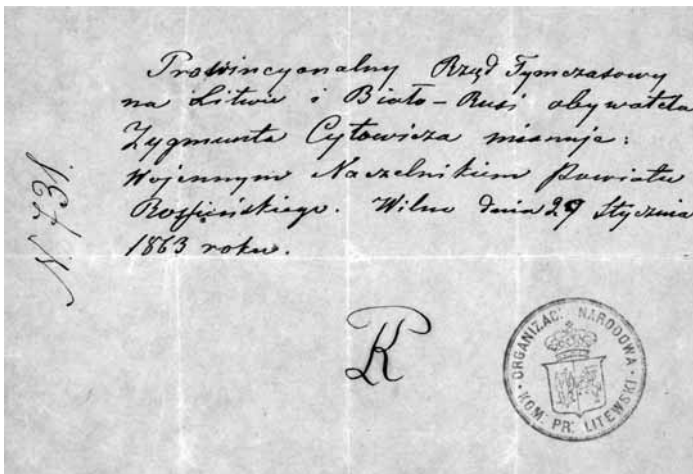 Prowincyonalny Rząd Tymczasowy
na Litwie i Biało-Rusi obywatela
Zygmunta Cytowicza mianuje:
Wojennym Naczelnikiem Powiatu
Rossieńskiego. Wilno dnia 29 Stycznia
1863 roku.
N. 731.
K
ORGANIZAC: NARODOWA
KOM. PR: LITEWSKI